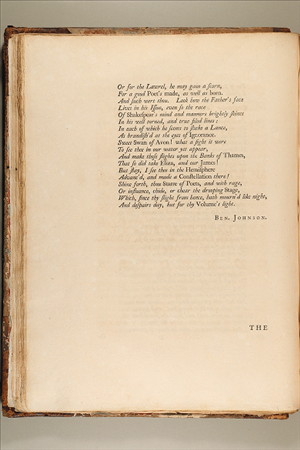 Or for the Lawrel, he may gain a scorn,
For a good Poet's made, as well as born.
And such wert thou. Look how the Father's face
Lives in his Issue, even so the race
Of Shakespear's mind and manners brightly shines
In his well torned, and true filed lines:
In each of which he seems to shake a Lance,
As brandish'd at the eyes of Ignorance.
Sweet Swan of Avon! what a sight it were
To see thee in our water yet appear,
And make those flights upon the Banks of Thames,
That so did take Eliza, and our James!
But stay, I see thee in the Hemisphere
Advanc'd, and made a Constellation there!
Shine forth, thou Starre of Poets, and with rage,
Or influence, chide, or chear the drooping Stage,
Which, since thy flight from hence, hath mourn'd like night,
And despairs day, but for thy Volume's light.
BEN. JOHNSON.
THE